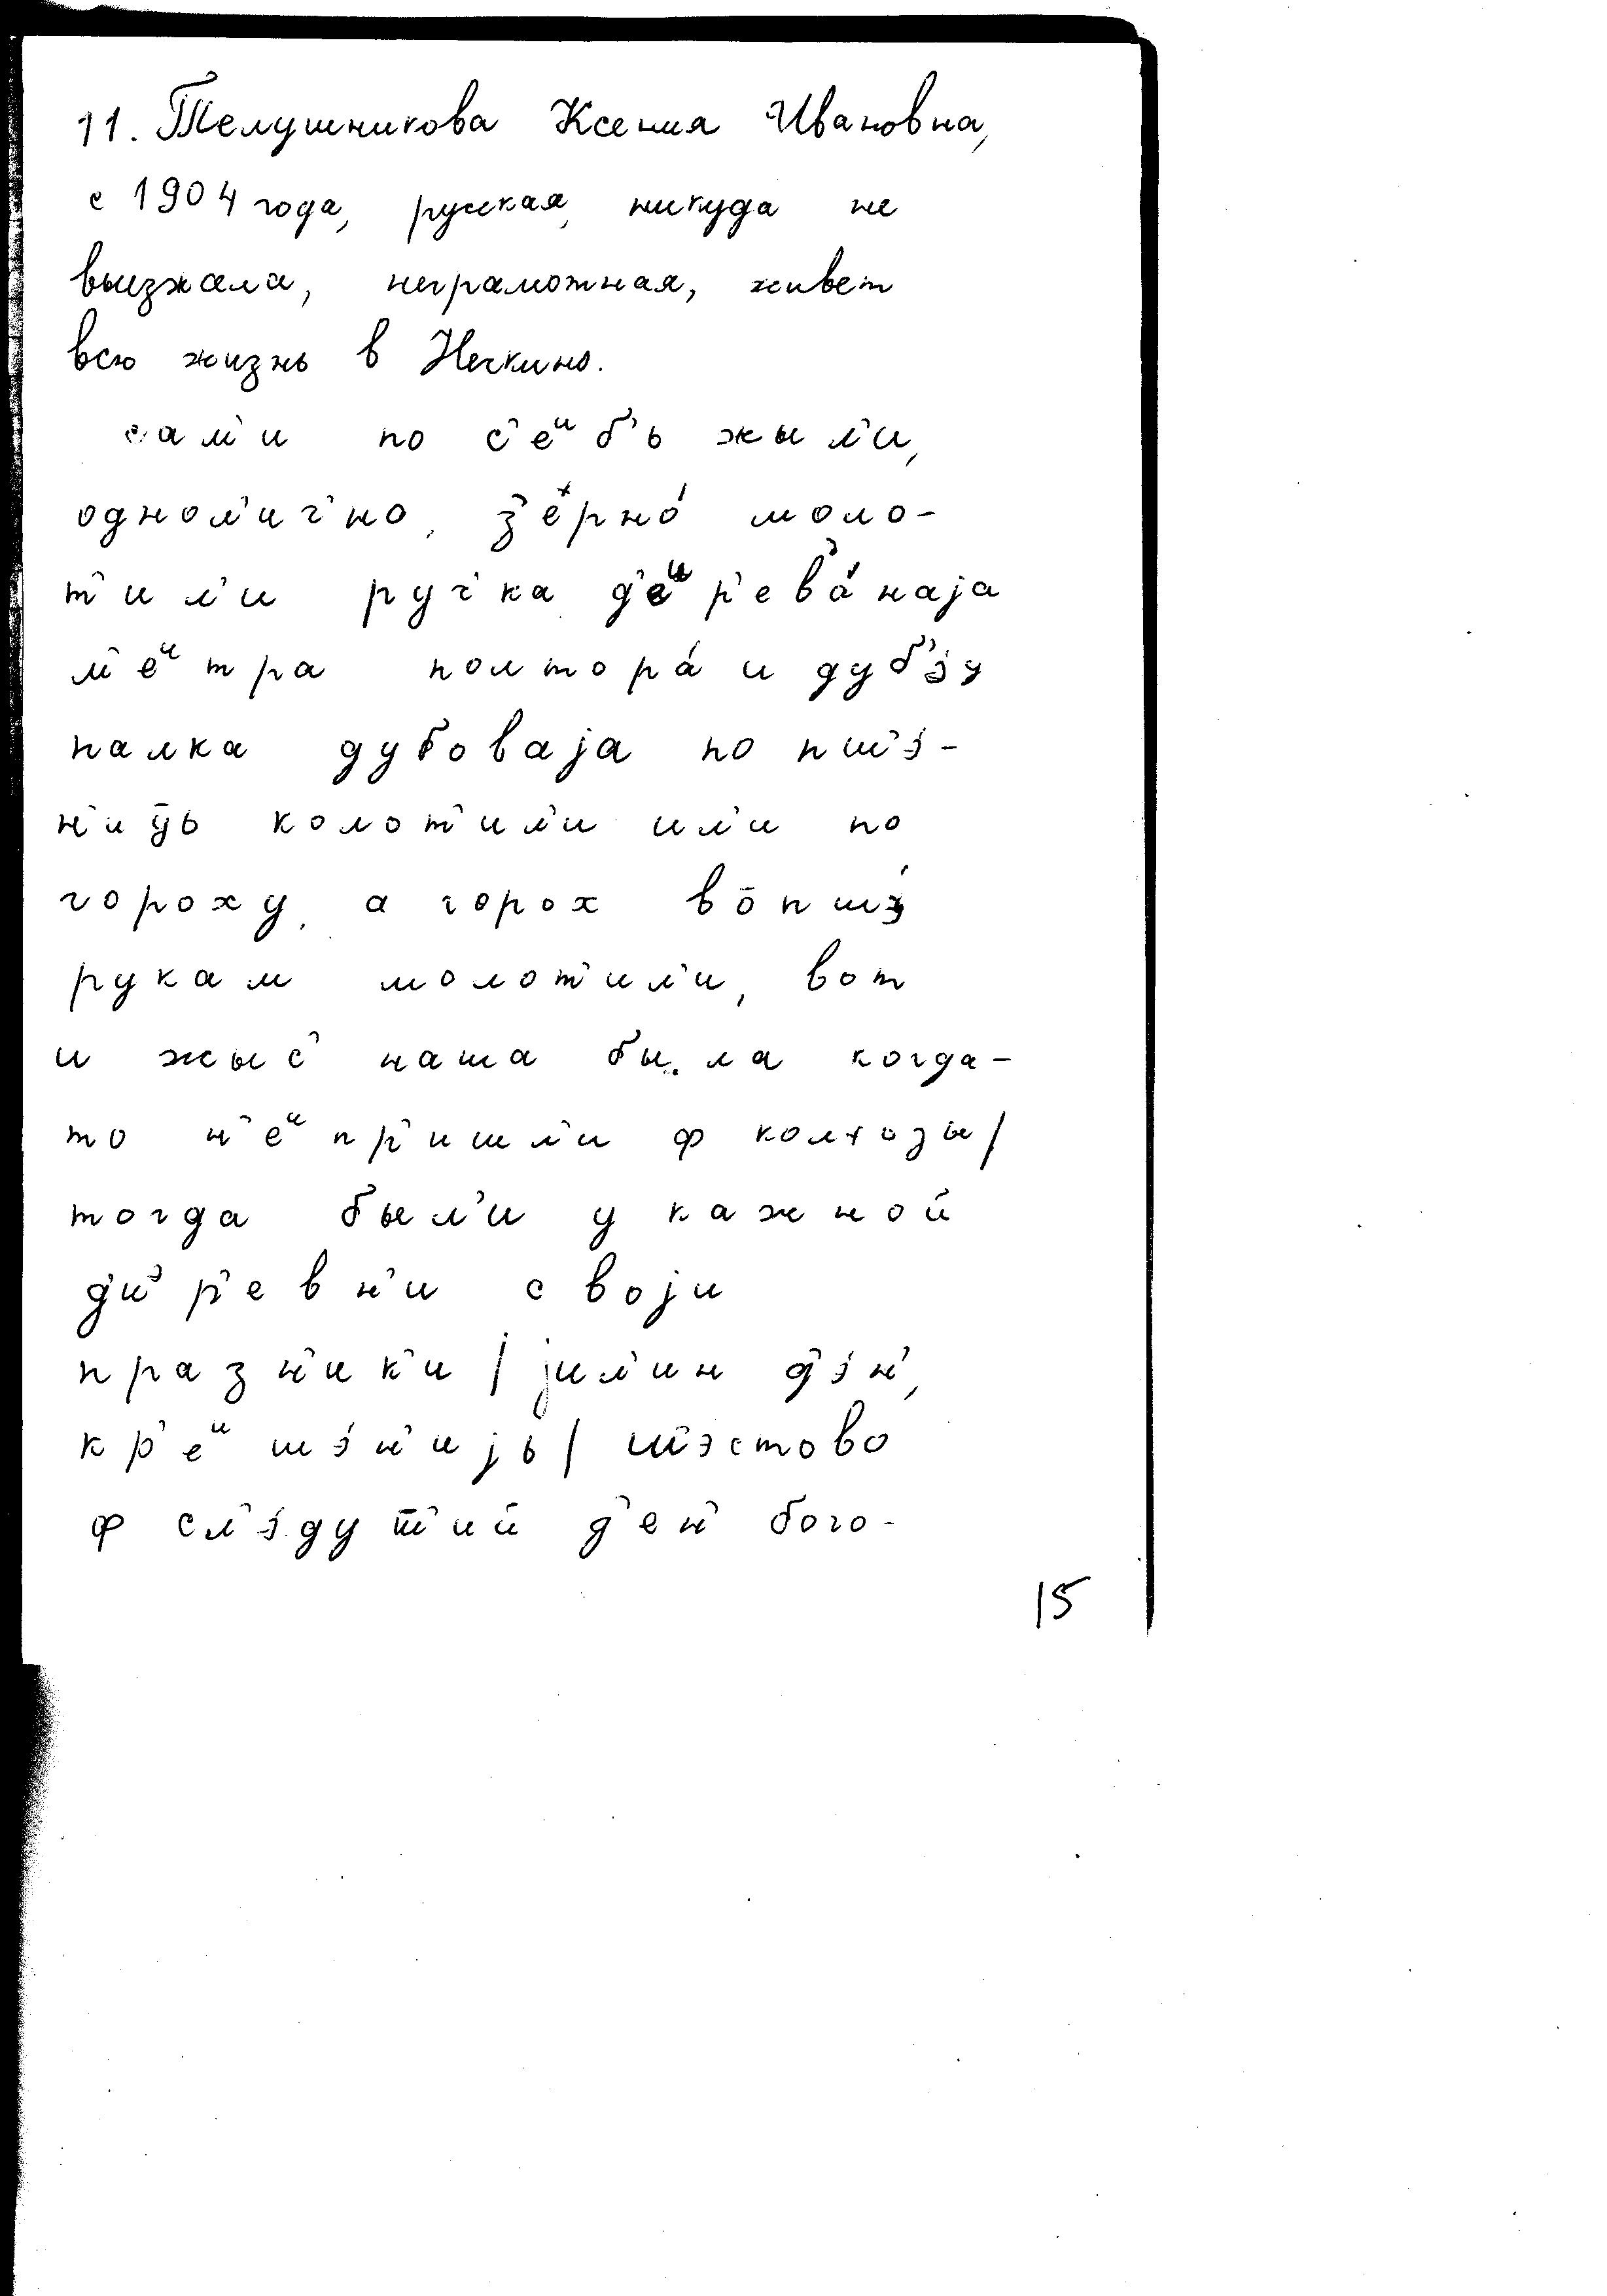 11. Телушникова Ксения Ивановна,
с 1904 года, русская, никуда не
выезжала, неграмотная, живет
всю жизнь в Нечкино.
сам'и по с'еᵘб'ь жыл'и,
однол'ич'но, з'ёрно́ моло-
т'ил'и руч'ка д'еᵘр'ев'а́наjа
м'еᵘтра полтора́ и дуб'э́у
палка дубоваjа по пш'э-
н'ицъ колот'ил'и ил'и по
гороху, а горох во̄пш'э́
рукам молот'ил'и, вот
и жыс' наша была когда-
то н'еᵘпр'ишл'и ф колхозы/
тогда был'и у кажной
д'иᵊр'евн'и своjи
празн'ик'и/jил'ин д'эн',
кр'еᵘш'э́н'иjь/ш'эство
ф сл'э́душ̄'ий д'ен' бого-
15